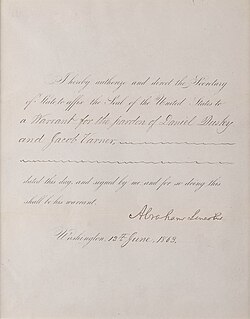 I hereby authorize and direct the Secretary
of State to affix the Seal of the United States to
a Warrant for the pardon of Daniel Dusky
and Jacob Varner,
dated this day, and signed by me and for so doing this
shall be his warrant
Abraham Lincoln
Washington, 13th June, 1863.